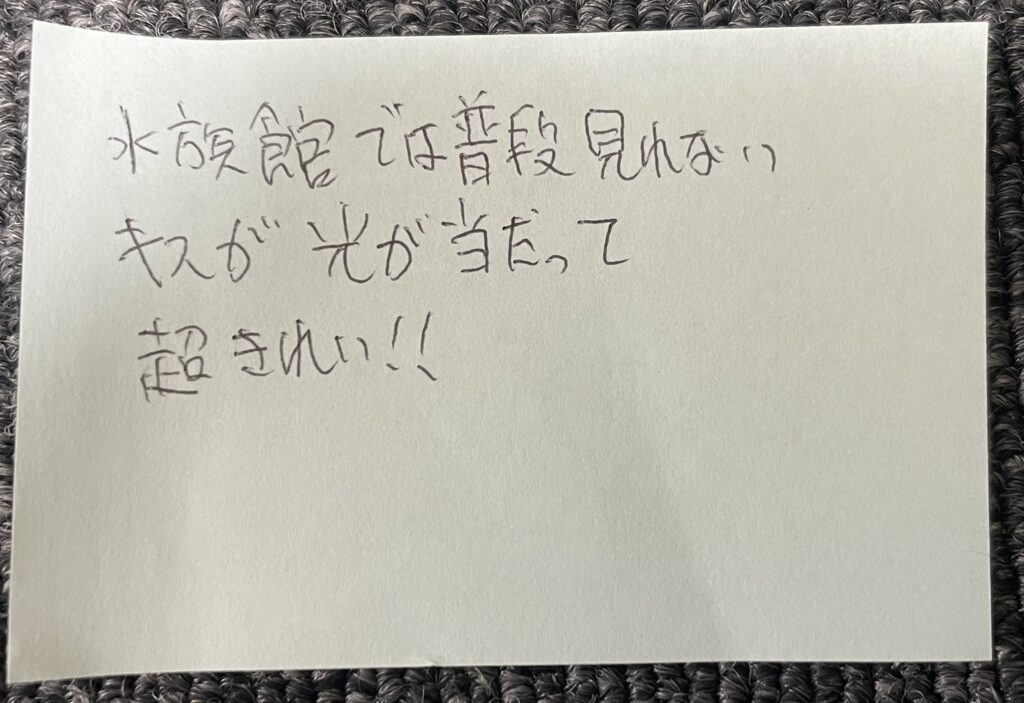 水族館では普段見れない
キスが光が当たって
超きれい!!